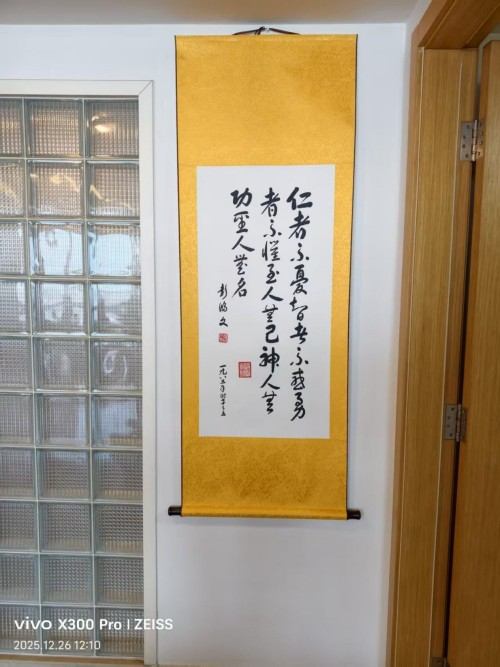 仁者不憂智者不惑勇
者不懼至人無己神人無
功聖人無名
一九八五年
vivo X300 Pro | ZEISS
2025.12.26 12:10